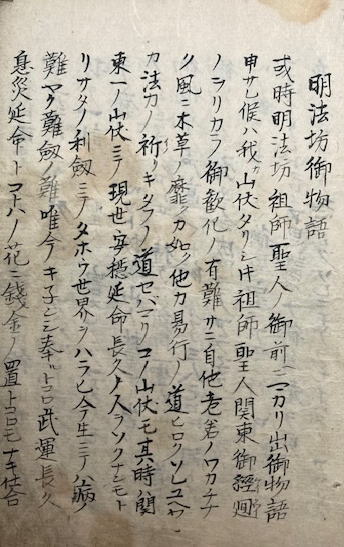 明法坊御物語
或時明法坊祖師聖人ノ御前ニマカリ出御物語
申サレ候ハ我ガ山伏タリシ時祖師聖人関東御經廻
ノ御歓化ノ有難サニ自他老若ノワカチナ
ク風ニ木草ノ靡クカ如ク他力易行ノ道ヒロク
カ法力ノ祈リキタフノ道セバマリコノ山伏モ其時関
東一ノ山伏ニテ現世安穏延命長久
リサタノ利劔ニテ世界ヲハラヒ今生ニテハ病ノ
難劔ノ難唯今武運長久
息災延命トコトハノ花ニ錢金ノ置トコロモナキ仕合